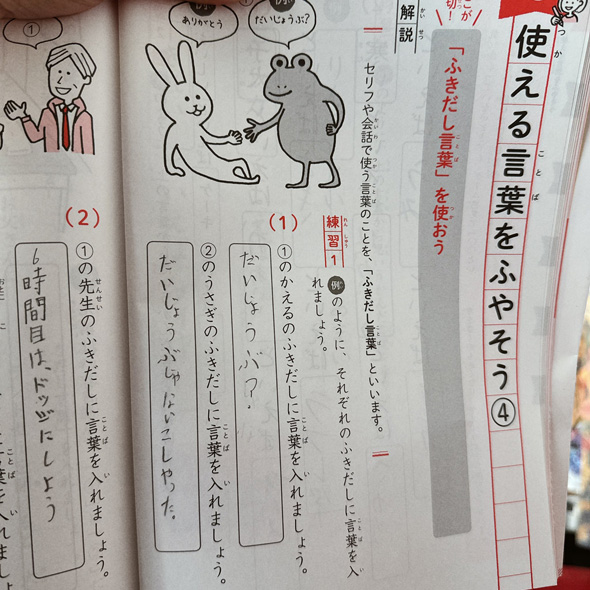 使える言葉をふやそう④
「ふきだし言葉」を使おう
解説
セリフや会話で使う言葉のことを、「ふきだし言葉」といいます。
ありがとう
だいじょうぶ?
練習1
例のように、それぞれのふきだしに言葉を入
れましょう。
(1)
①のかえるのふきだしに言葉を入れましょう。
だいじょうぶ?
②のうさぎのふきだしに言葉を入れましょう。
①
(2)
①の先生のふきだしに言葉を入れましょう。
6時間目は、ドッヂにしよう
言葉を入れましょ